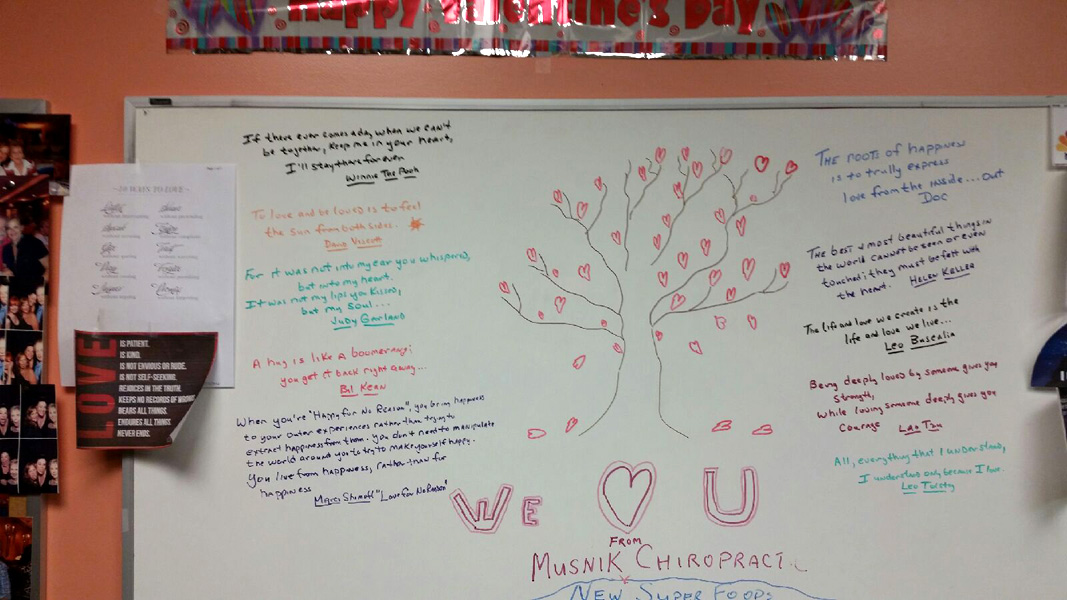 Happy Valentine's Day
If there ever comes a day, when we can't
be together, keep me in your heart,
I'll stay there forever
Winnie The Pooh
To love and be loved is to feel
the sun from both sides.
David Viscott
For it was not into my ear you whispered,
but into my heart.
It was not my lips you kissed,
but my soul...
Judy Garland
A hug is like a boomerang:
you get it back right away...
Bil Kean
When you're "Happy for No Reason", you bring happiness
to your outer experiences rather than trying to
extract happiness from them. you don't need to manipulate
the world around you to try to make yourself happy.
You live from happiness, rather than for
happiness
Marci Shimoff "Love for No Reason"
THE ROOTS of happiness
is to trully express
love from the inside... out
Doc
The best & most beautiful things in
the world cannot be seen or even
touched; they must be felt with
the heart. HELEN KELLER
The life and love we create is the
life and love we live...
Leo Buscalia
Being deeply loved by someone gives you
strength,
while loving someone deeply gives you
Courage Lao Tzu
All, everything that I understand,
I understand only because I love.
Leo Tolstoy
50 WAYS TO LOVE
LOVE
IS PATIENT.
IS KIND.
IS NOT ENVIOUS OR RUDE.
IS NOT SELF-SEEKING.
REJOICES IN THE TRUTH.
KEEPS NO RECORDS OF WRONG
BEARS ALL THINGS.
ENDURES ALL THINGS
NEVER ENDS.
WE U
FROM
MUSNIK CHIROPRACTIC
NEW SUPER FOODS